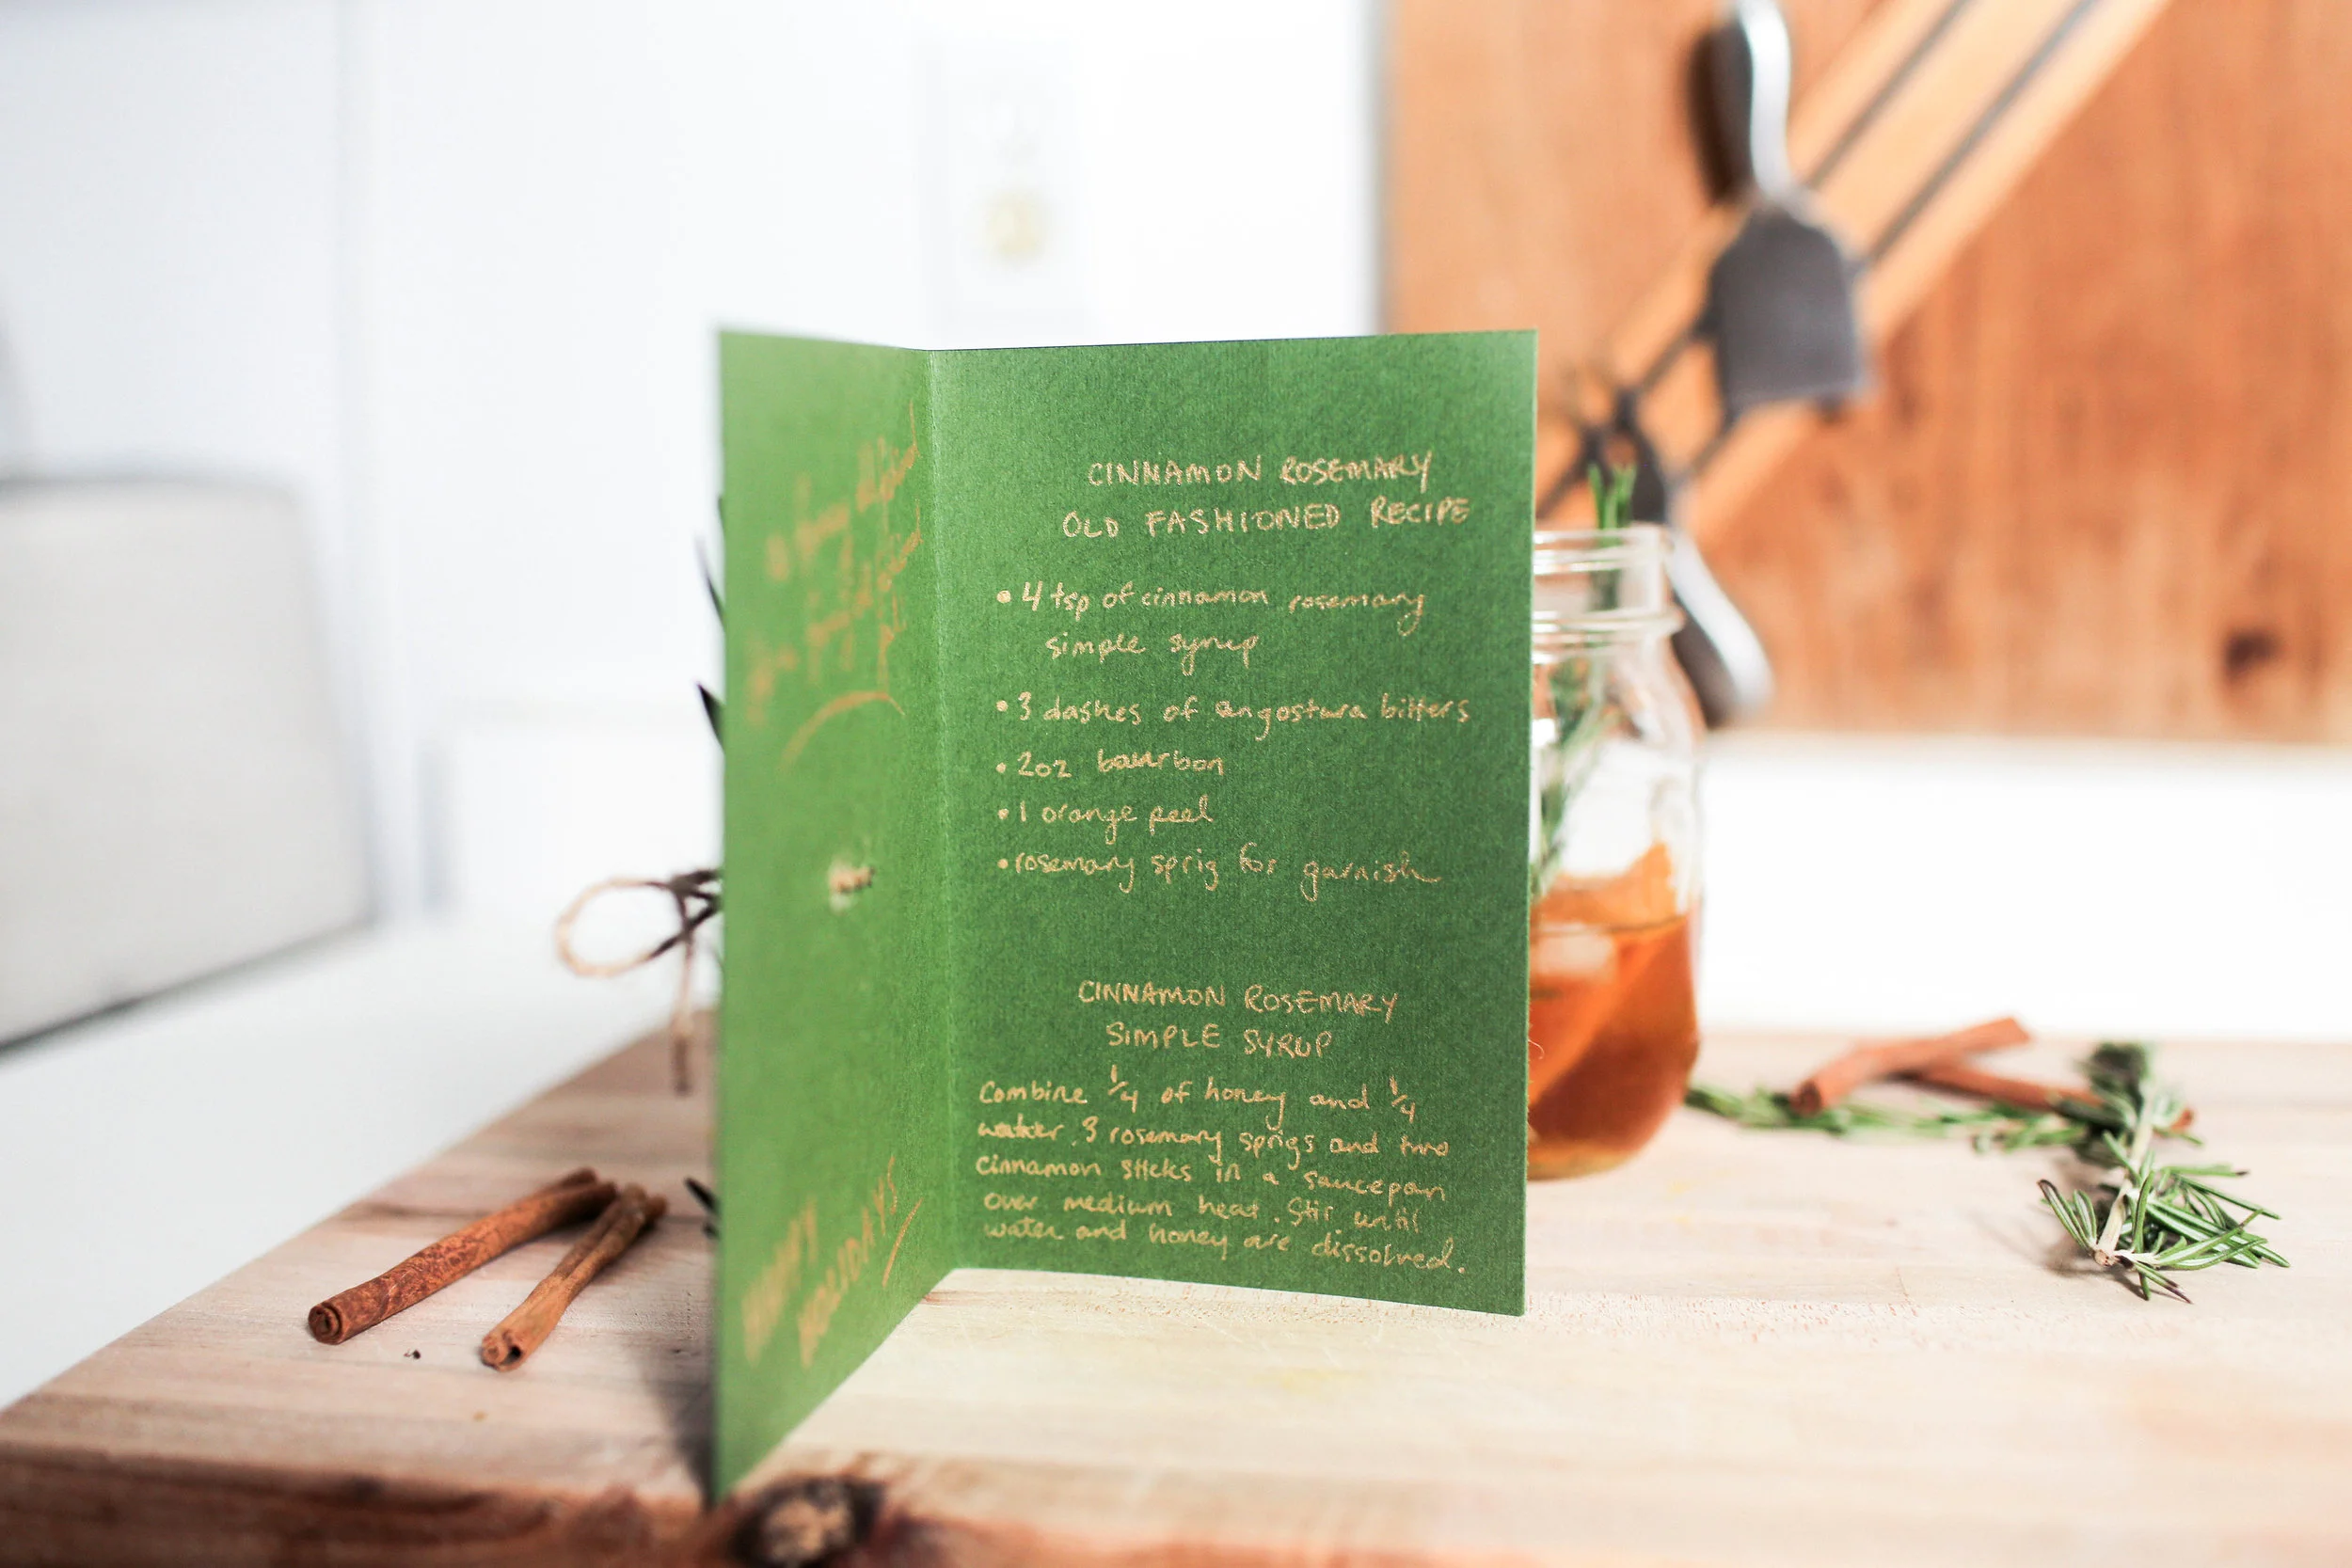 HAPPY
HOLIDAYS
CINNAMON ROSEMARY
OLD FASHIONED RECIPE
• 4 tsp of cinnamon rosemary
simple syrup
• 3 dashes of angostura bitters
• 2oz bourbon
• 1 orange peel
• rosemary sprig for garnish
CINNAMON ROSEMARY
SIMPLE SYRUP
Combine 1/4 of honey and 1/4
water, 3 rosemary sprigs and two
cinnamon sticks in a saucepan
over medium heat. Stir until
water and honey are dissolved.